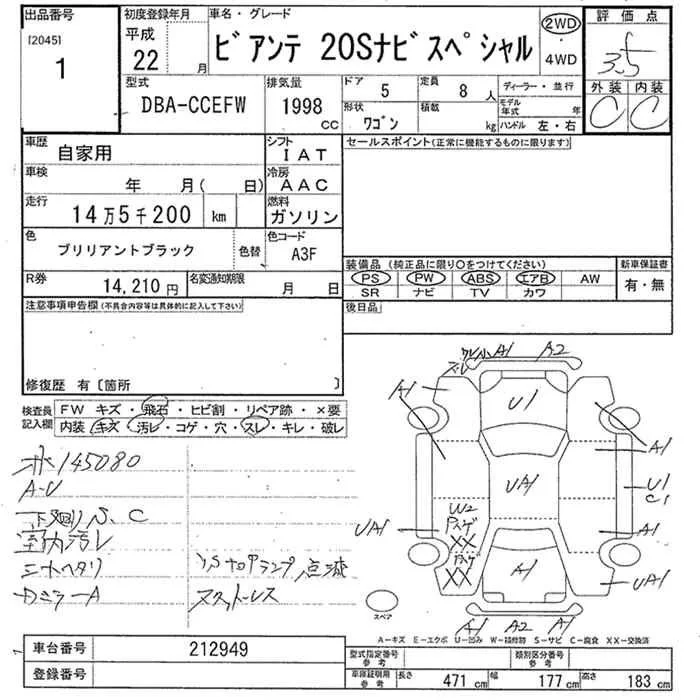 出品番号
[2045]
1
初度登録年月
平成
22 月
車名・グレード
ビアンテ 20Sナビスペシャル
2WD
・
4WD
評価点
3.5
外装 内装
C C
型式
DBA-CCEFW
排気量
1998
CC
ドア
5
定員
8 人
形状
ワゴン
積載
kg
ディーラー・並行
モデル年式 年
ハンドル 左・右
車歴
自家用
シフト
IAT
車検
年 月( 日)
冷房
AAC
走行
14万5千200 km
燃料
ガソリン
色
ブリリアントブラック
色替
色コード
A3F
R券
14,210 円
名変通知期限
月 日
セールスポイント(正常に機能するものに限ります)
装備品(純正品に限り○をつけてください)
PS PW ABS エアB AW
SR ナビ TV カワ
新車保証書
有・無
後日品
注意事項申告欄(不具合内容等は具体的に記入して下さい)
修復歴 有〔箇所 〕
検査員
記入欄
FW キズ・飛石・ヒビ割・リペア跡・×要
内装 キズ・汚レ・コゲ・穴・スレ・キレ・破レ
145080
下廻りS、C
室内汚レ
シートヘタリ
A1 A2
A1
U1
A1
UA1
U1
C1
W2
XX
XX
UA1
A1
A1
UA1
A1 A2 A1
スペア
A－キズ E－エクボ U－凹み W－補修跡 S－サビ C－腐食 XX－交換済
車台番号
212949
登録番号
型式指定番号
参考
類別区分番号
参考
車庫証明用
参考
長さ 471 cm 幅 177 cm 高さ 183 cm